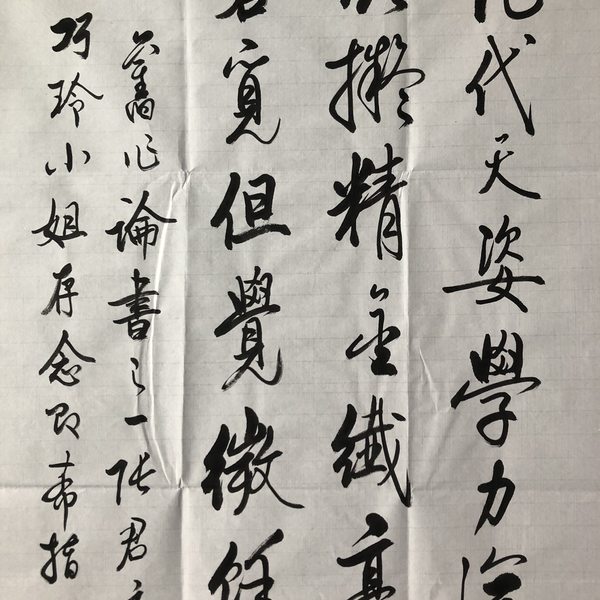 代天姿學力
擬精金纖
覓但覺微
舊作論書之一張君
巧玲小姐存念即希指